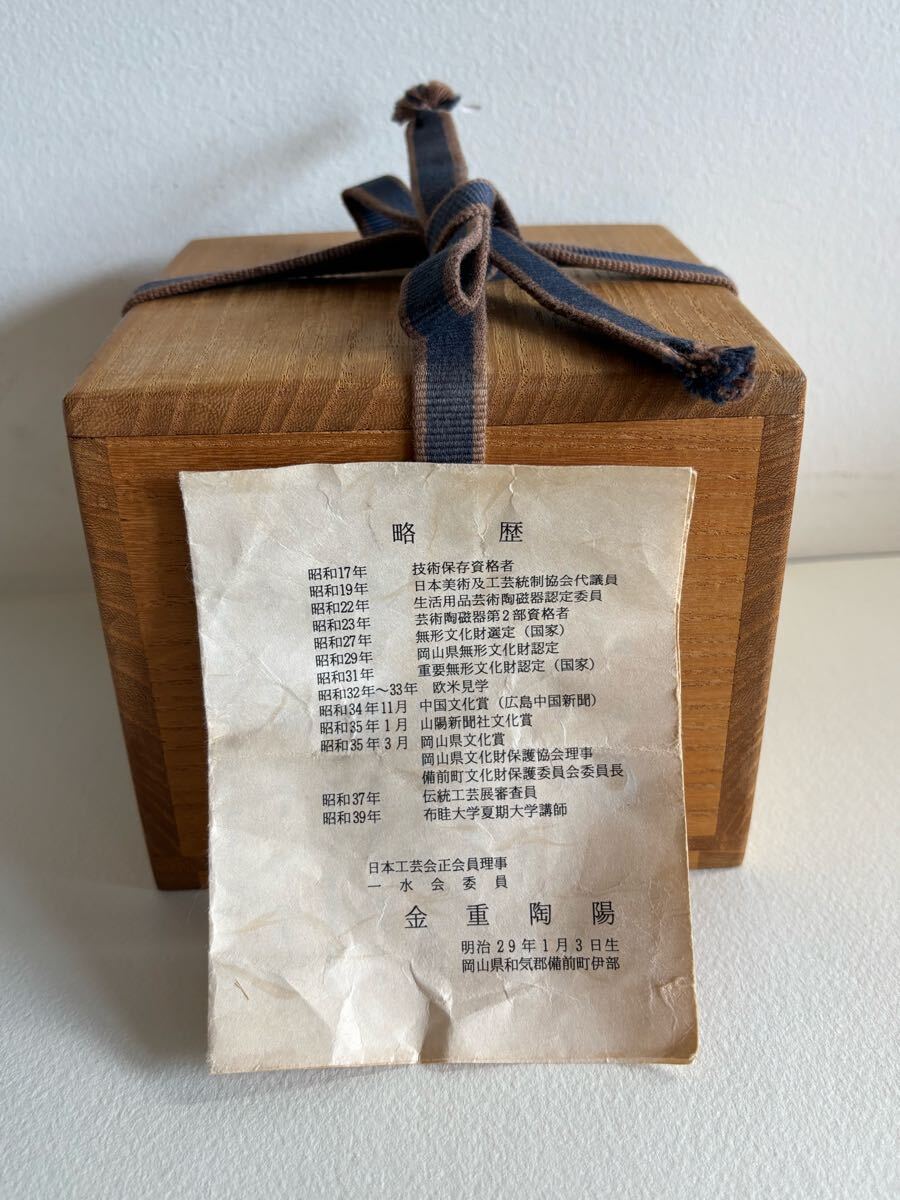 略歴
昭和17年 技術保存資格者
昭和19年 日本美術及工芸統制協会代議員
昭和22年 生活用品芸術陶磁器認定委員
昭和23年 芸術陶磁器第2部資格者
昭和27年 無形文化財選定（国家）
昭和29年 岡山県無形文化財認定
昭和31年 重要無形文化財認定（国家）
昭和32年〜33年 欧米見学
昭和34年11月 中国文化賞（広島中国新聞）
昭和35年1月 山陽新聞社文化賞
昭和35年3月 岡山県文化賞
岡山県文化財保護協会理事
備前町文化財保護委員会委員長
昭和37年 伝統工芸展審査員
昭和39年 布哇大学夏期大学講師
日本工芸会正会員理事
一水会委員
金重陶陽
明治29年1月3日生
岡山県和気郡備前町伊部